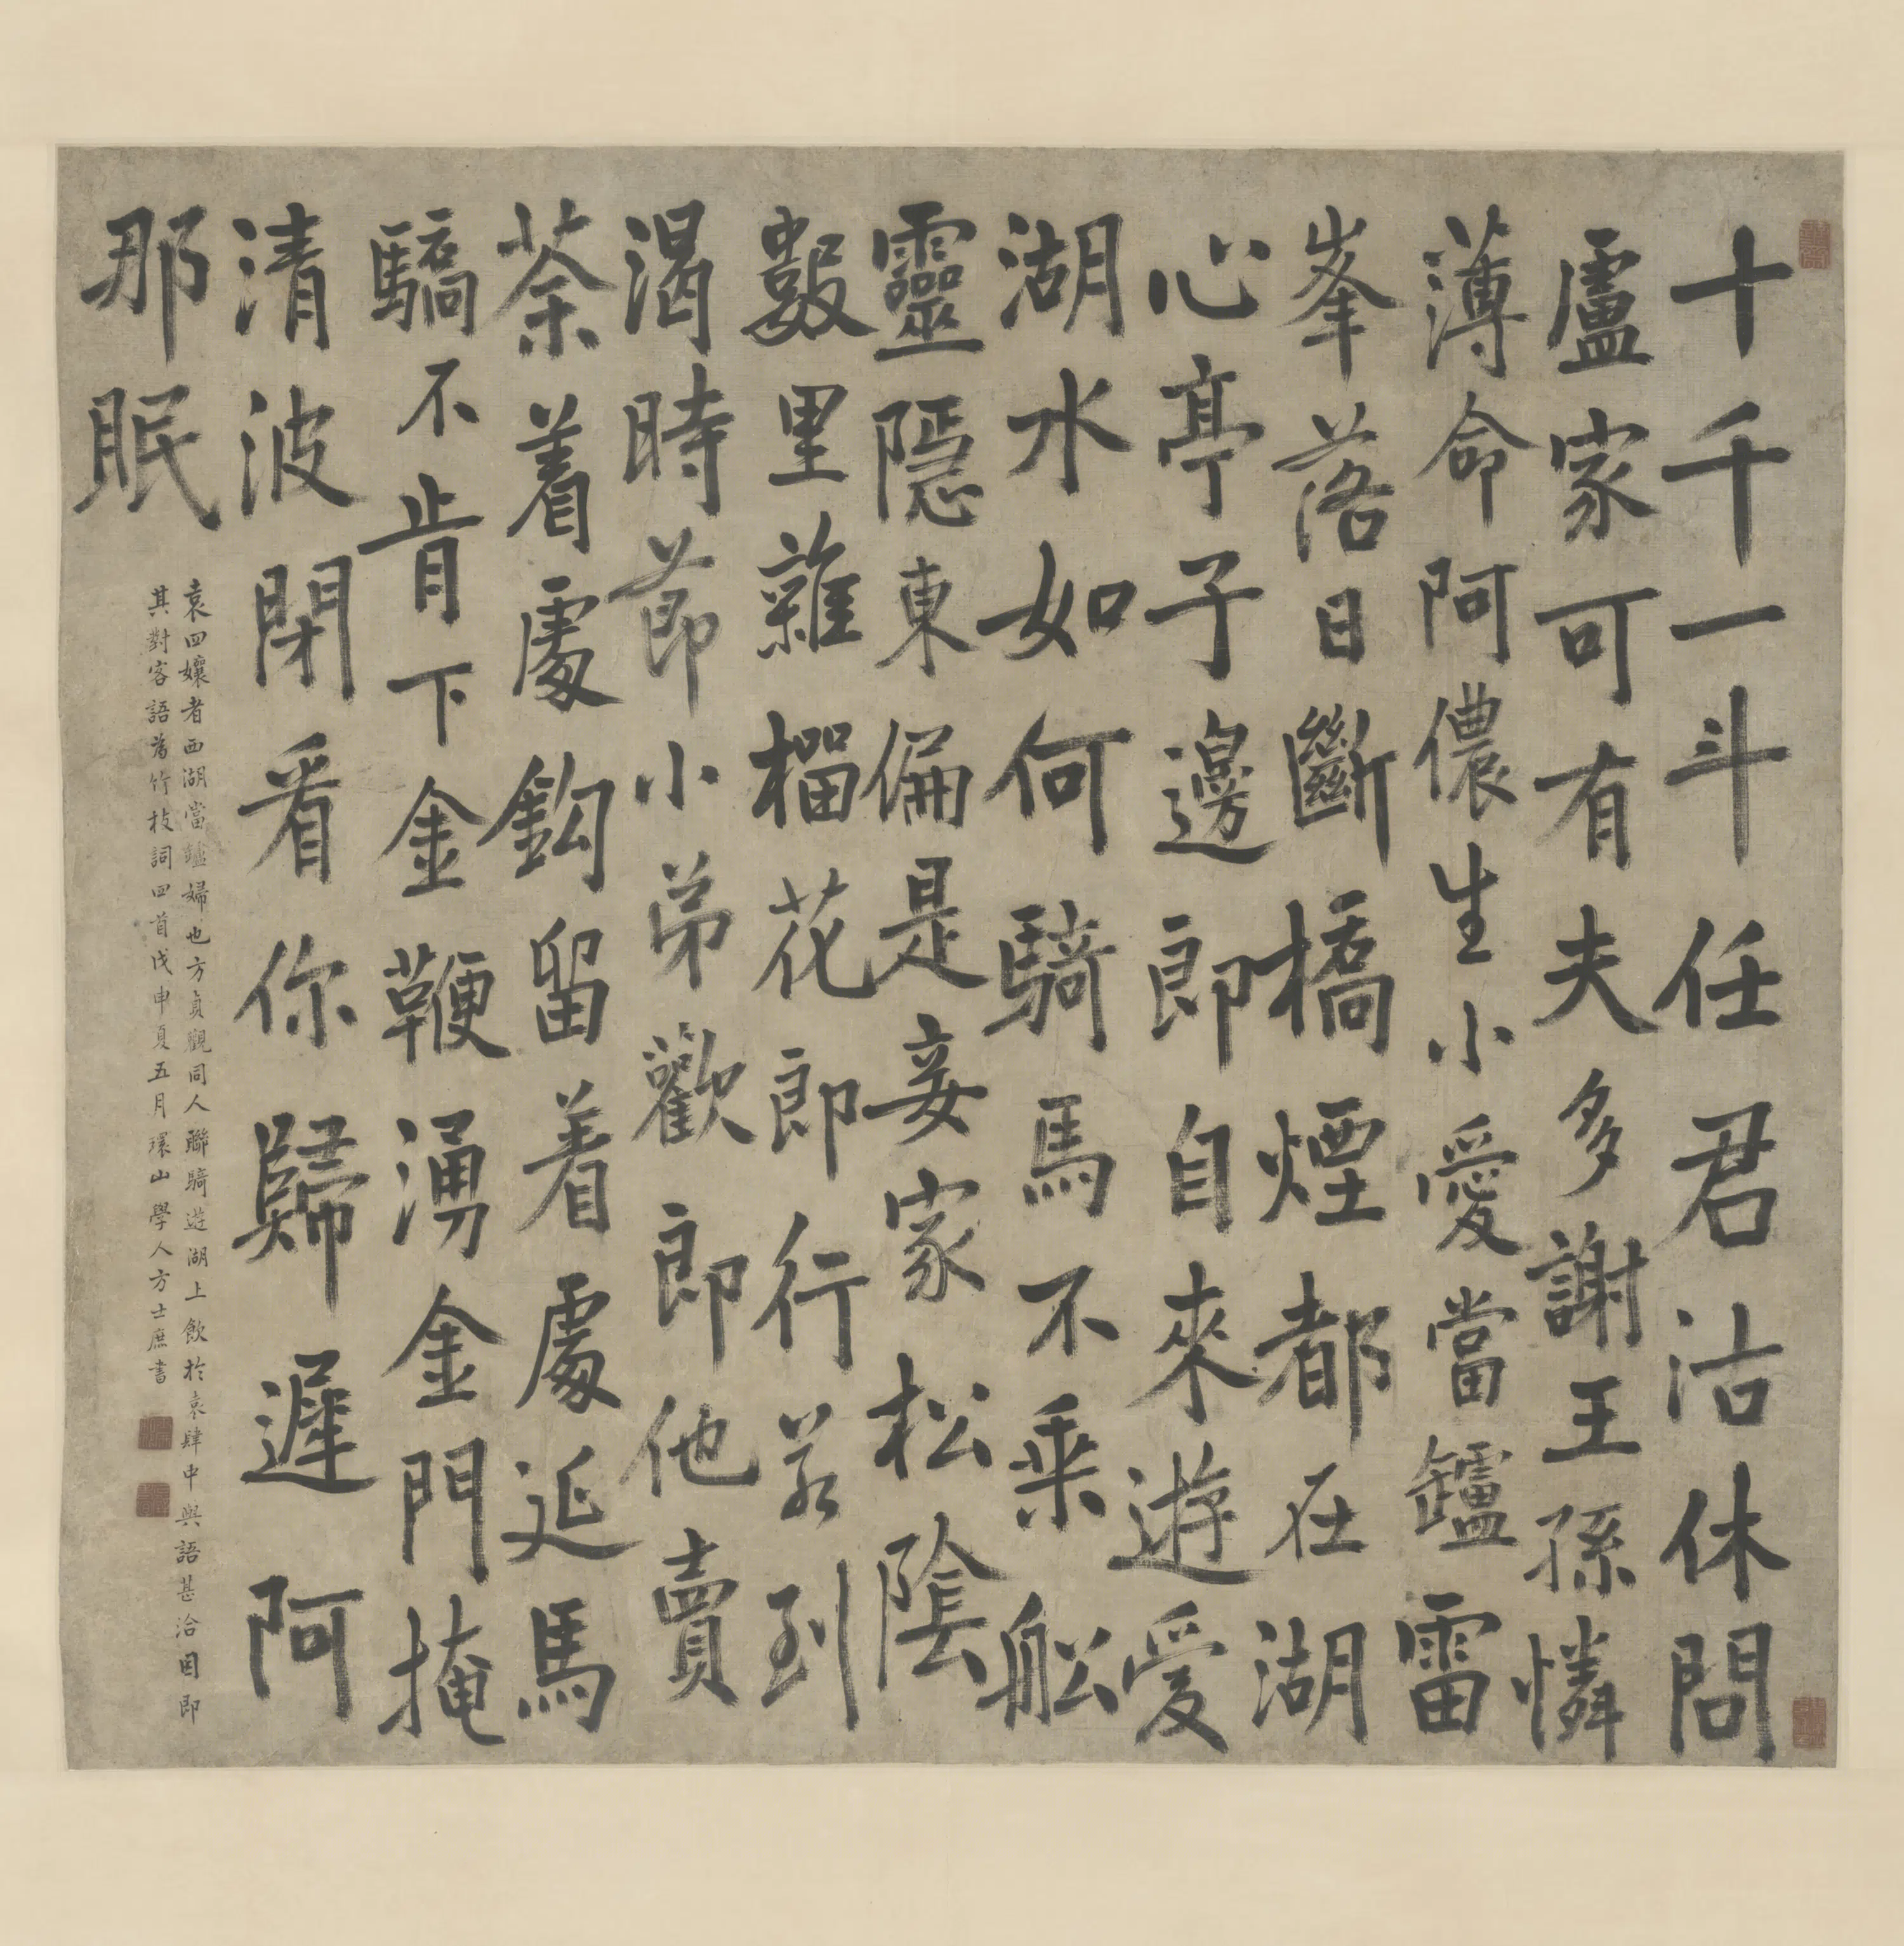 十千一斗任君沽休問
盧家可有夫多謝王孫憐
薄命阿儂生小愛當鑪雷
峯落日斷橋煙都在湖
心亭子邊郎自來遊愛
湖水如何騎馬不乗舩
靈隱東偏是妾家松陰
數里雜榴花郎行若到
渴時莭小弟歡郎他賣
茶着處鈎留着處延馬
驕不肯下金鞭湧金門掩
清波閉看你歸遲阿
那眠
袁四孃者西湖當壚婦也方貞觀同人聯騎遊湖上飲於袁肆中與語甚洽因即
其對客語為竹枝詞四首戊申夏五月環山學人方士庶書